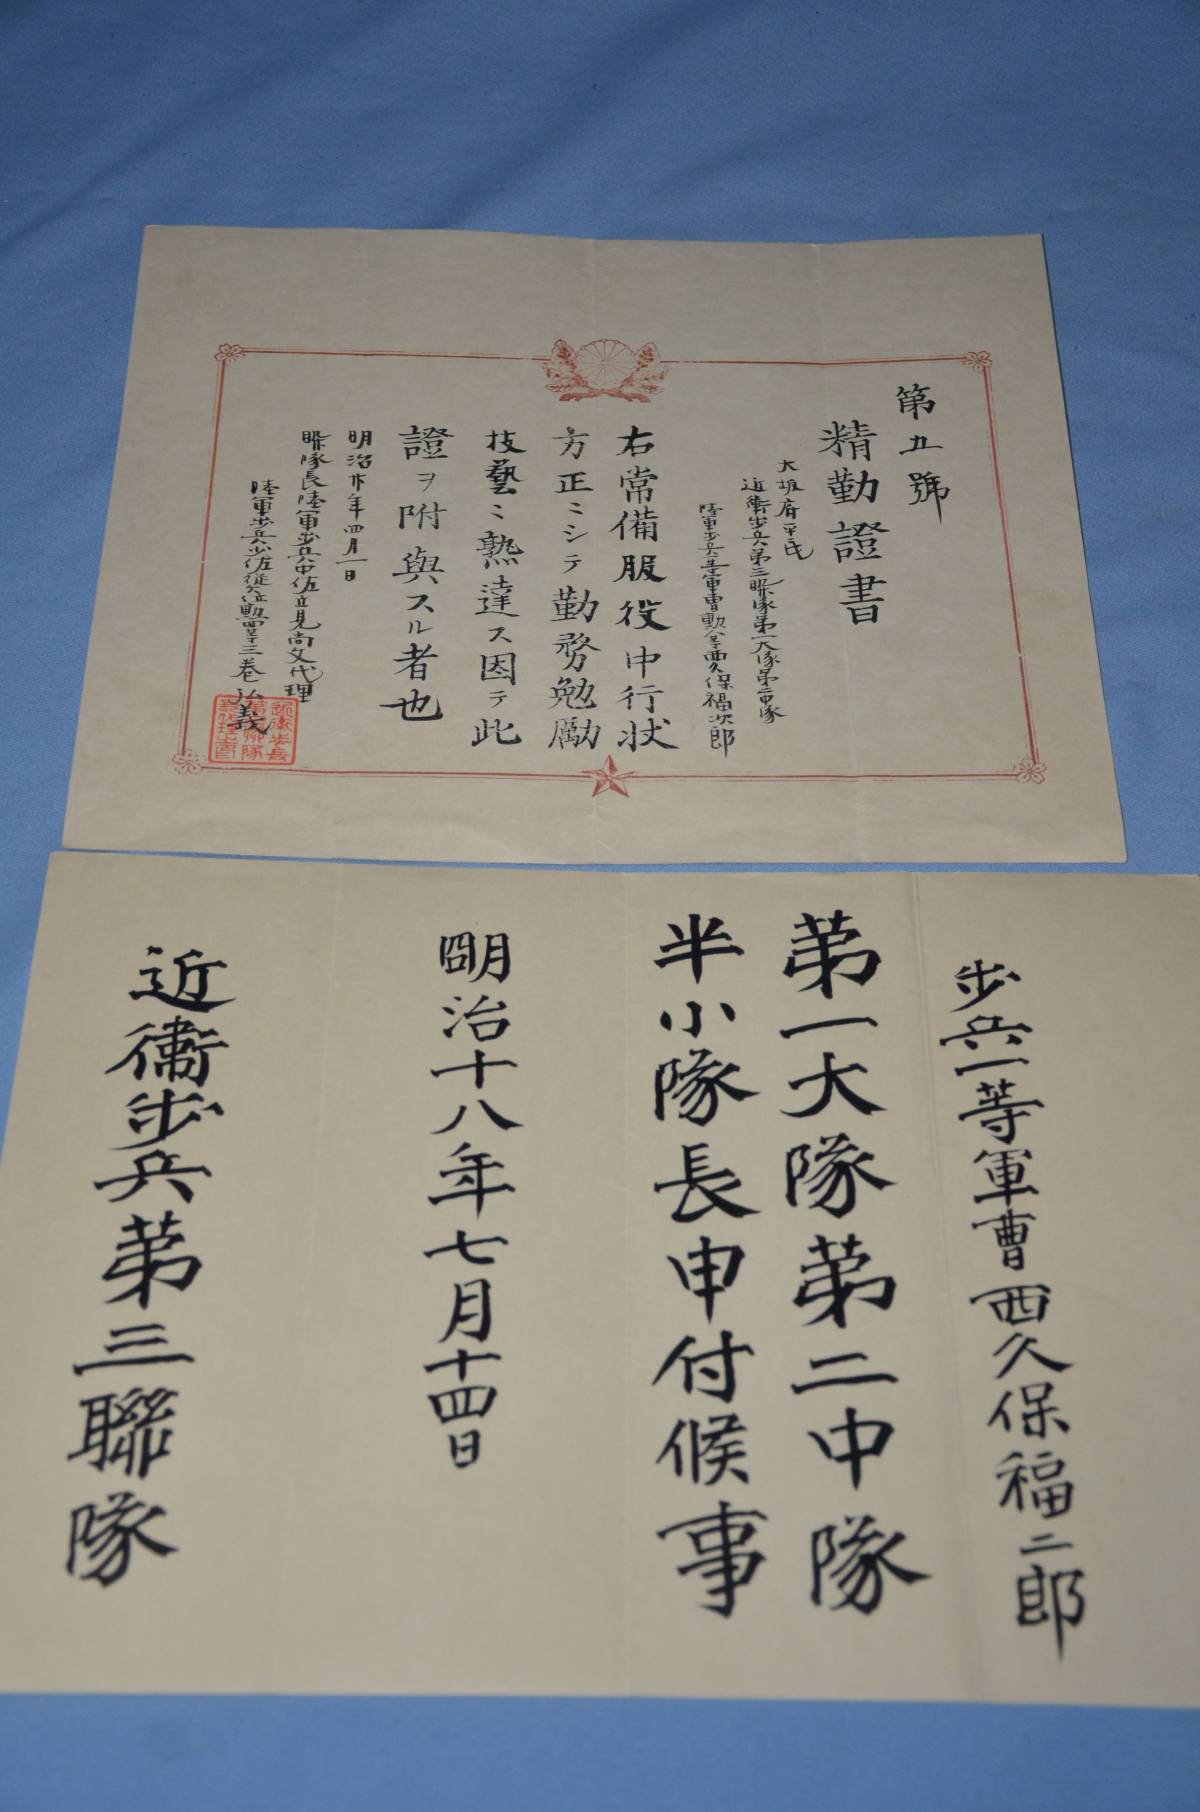 第五號
精勤證書
大坂府平民
近衛歩兵第三聯隊第一大隊第二中隊
陸軍歩兵一等軍曹勲八等西久保福次郎
右常備服役中行状
方正ニシテ勤務勉勵
技藝ニ熟達ス因テ此
證ヲ附與スル者也
明治廿年四月一日
聯隊長陸軍歩兵中佐立見尚文代理
陸軍歩兵少佐従六位勲四等三巻弘義
歩兵一等軍曹西久保福二郎
第一大隊第二中隊
半小隊長申付候事
明治十八年七月十四日
近衛歩兵第三聯隊